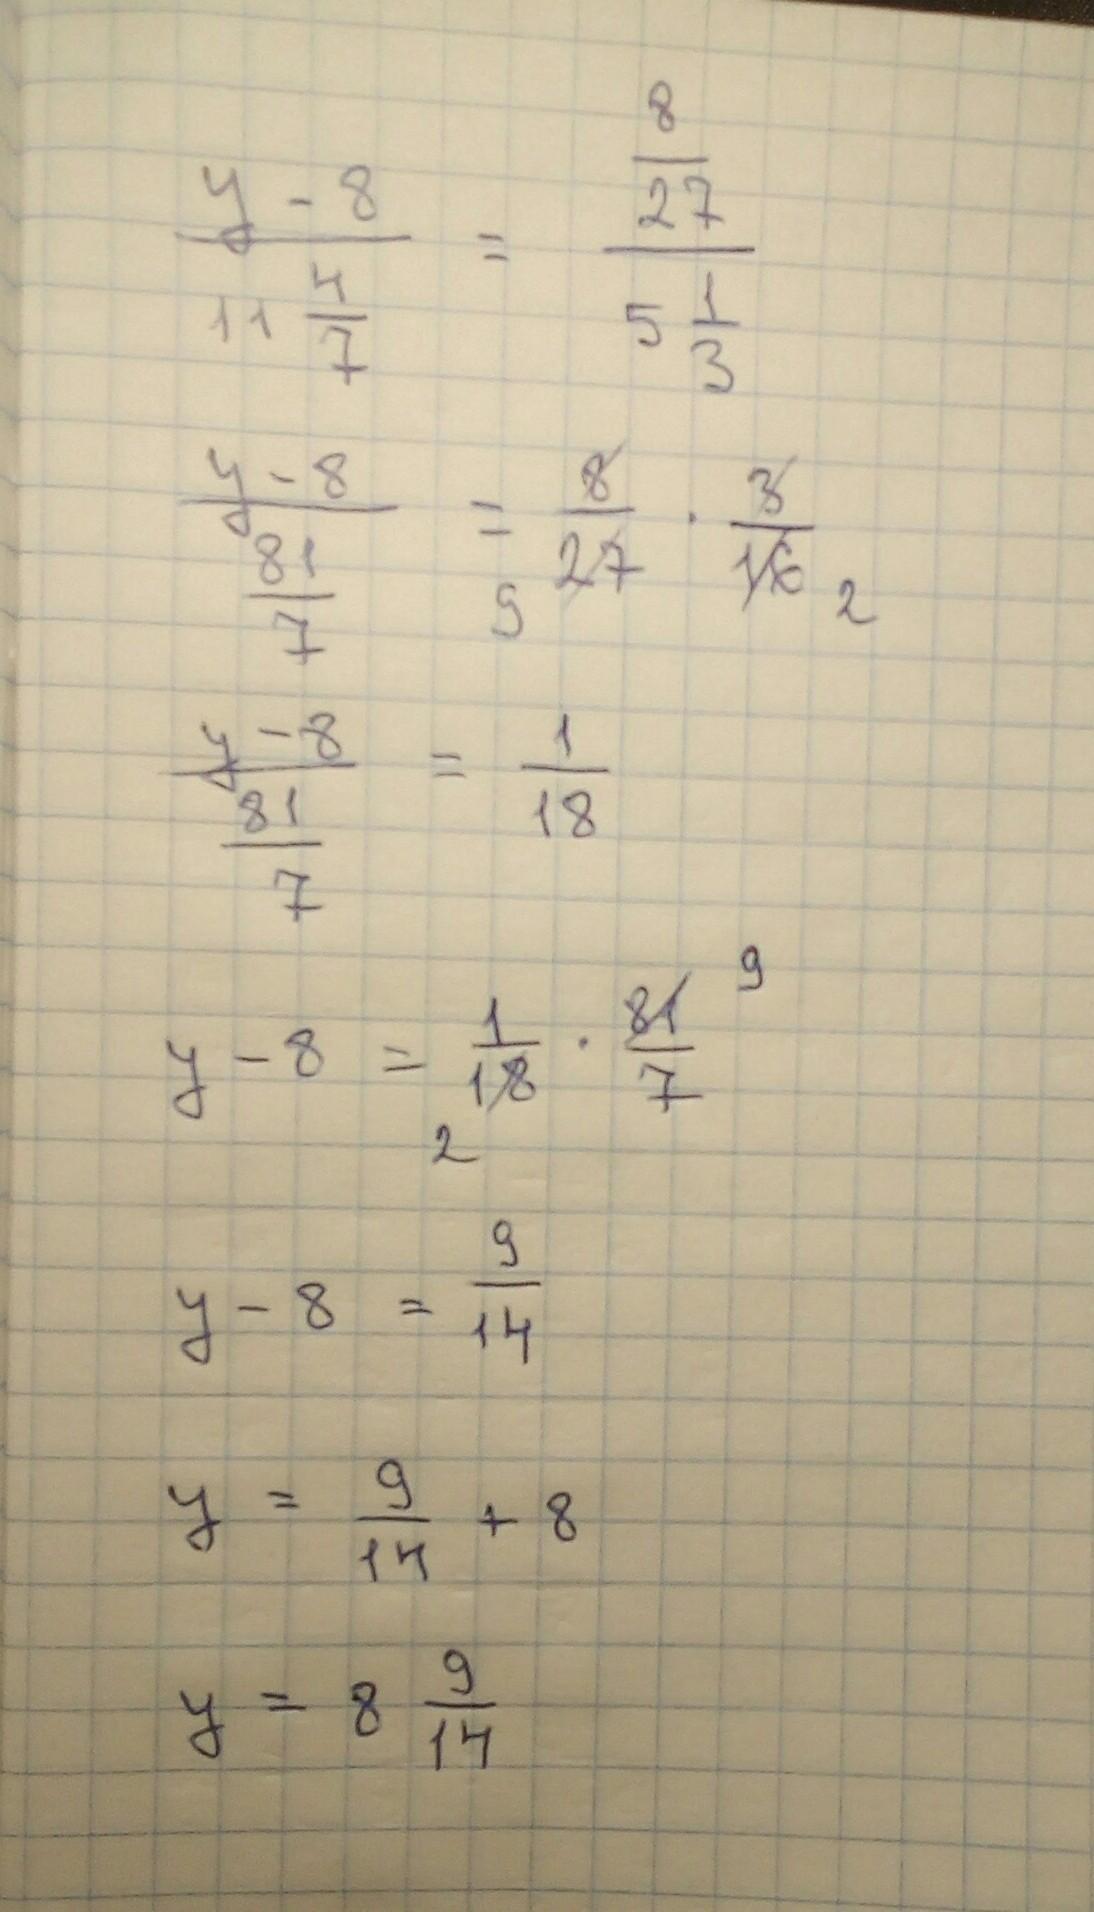 (y - 8) / (11 4/7) = (8/27) / (5 1/3)
(y - 8) / (81/7) = 8/27 · 3/16 9 2
(y - 8) / (81/7) = 1/18
y - 8 = 1/18 · 81/7 2 9
y - 8 = 9/14
y = 9/14 + 8
y = 8 9/14